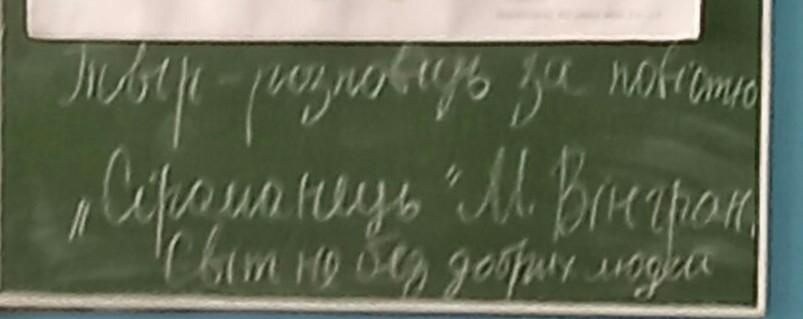 Твір-розповідь за повістю
„Сіроманець" М. Вінгран.
Світ не без добрих людей